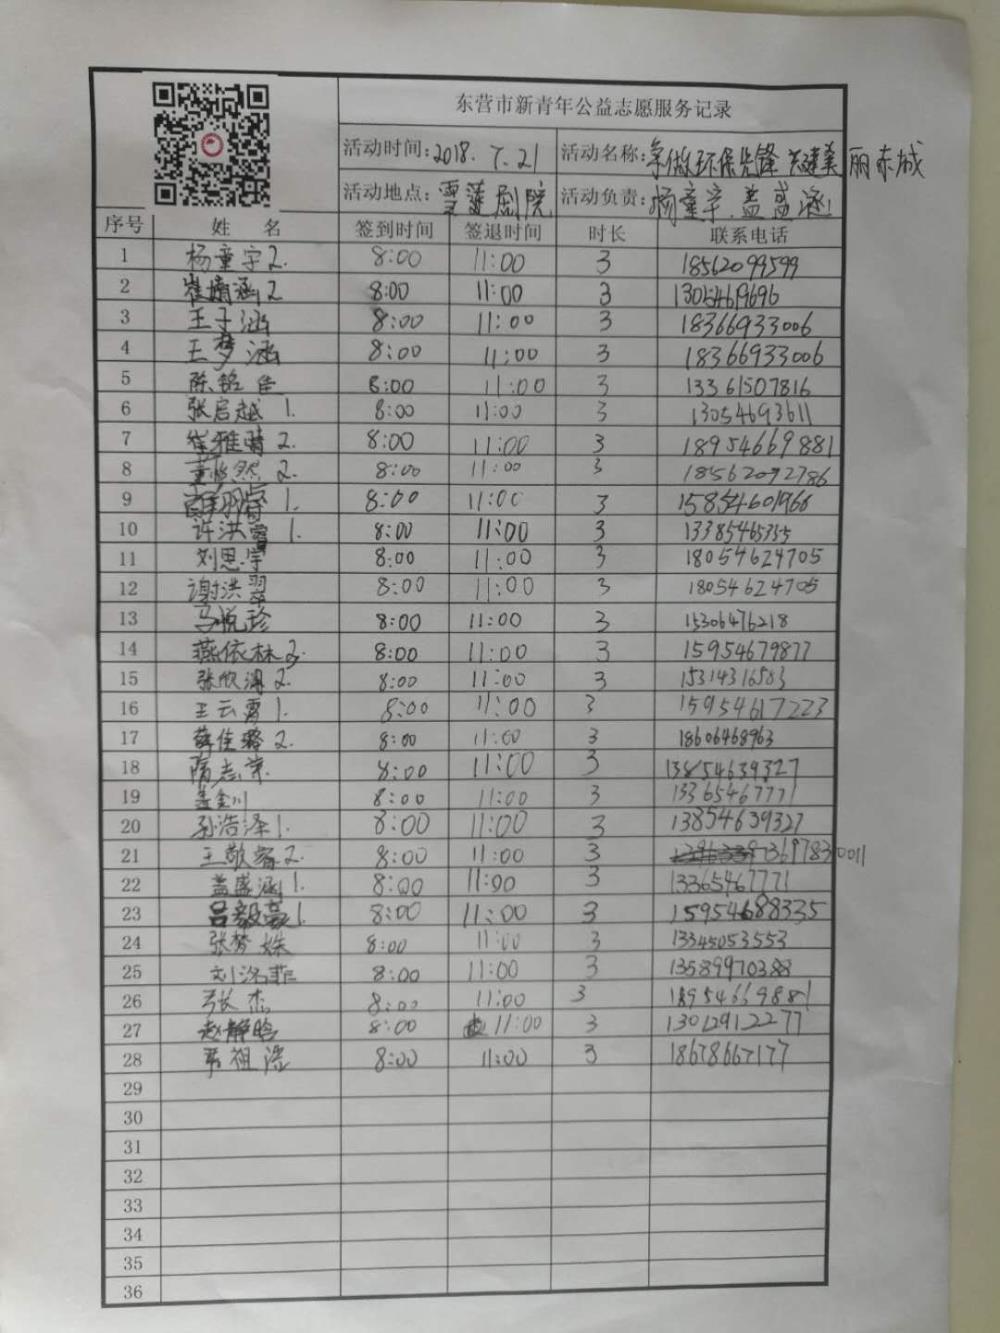 东营市新青年公益志愿服务记录
活动时间:2018.7.21 活动名称:争做环保先锋 共建美丽东城
活动地点:雪莲剧院 活动负责:杨童宇.盖盛涵
序号 姓 名 签到时间 签退时间 时长 联系电话
1 杨童宇2. 8:00 11:00 3 18562099599
2 崔婧涵2 8:00 11:00 3 13054619696
3 王子涵 8:00 11:00 3 18366933006
4 王梦涵 8:00 11:00 3 18366933006
5 陈铭佳 8:00 11:00 3 13361507816
6 张启越1. 8:00 11:00 3 13054693611
7 崔雅晴2. 8:00 11:00 3 18954669881
8 董悠然2. 8:00 11:00 3 18562092786
9 1. 8:00 11:00 3 15854601966
10 许洪 1. 8:00 11:00 3 13385465355
11 刘思宇 8:00 11:00 3 18054624705
12 谢洪翠 8:00 11:00 3 18054624705
13 马悦珍 8:00 11:00 3 15306476218
14 燕依林2. 8:00 11:00 3 15954679877
15 张欣 2. 8:00 11:00 3 15314316503
16 王云霄1. 8:00 11:00 3 15954617223
17 薛佳璐2. 8:00 11:00 3 18606468963
18 隋志荣 8:00 11:00 3 13854639327
19 盖金川 8:00 11:00 3 13365467771
20 孙浩泽1. 8:00 11:00 3 13854639327
21 王敬睿2. 8:00 11:00 3 13697830011
22 盖盛涵1. 8:00 11:00 3 13365467771
23 吕毅豪1. 8:00 11:00 3 15954688335
24 张梦姝 8:00 11:00 3 13345053553
25 刘洺菲 8:00 11:00 3 13589970388
26 张杰 8:00 11:00 3 18954669881
27 赵静晗 8:00 11:00 3 13012912277
28 祖浩 8:00 11:00 3 18678667177
29
30
31
32
33
34
35
36